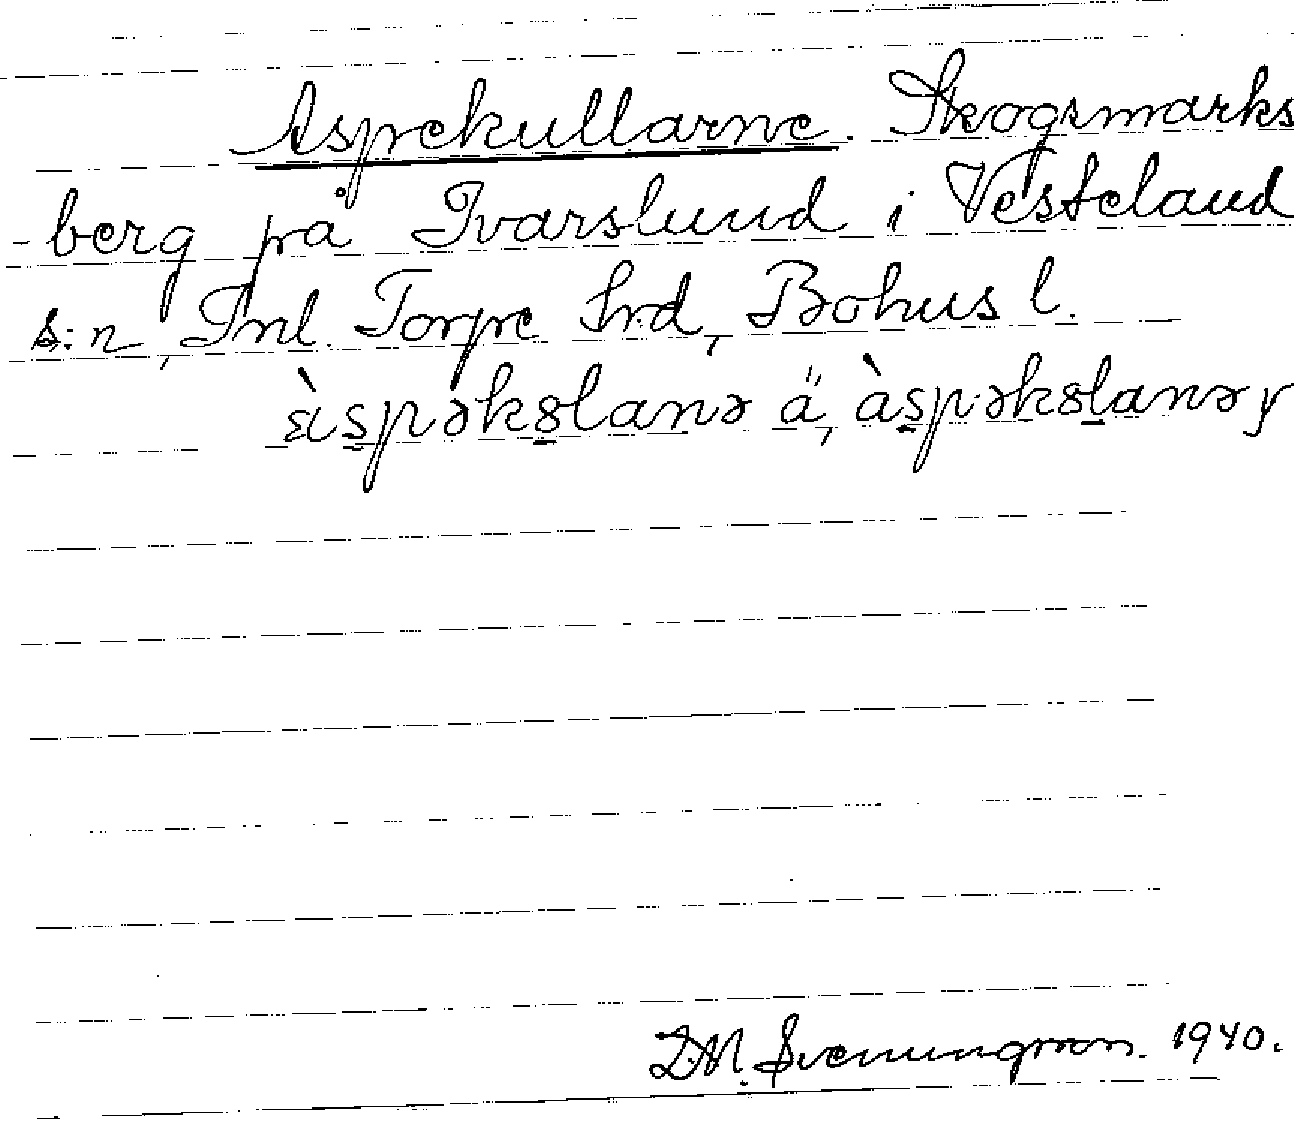 Aspekullarne. Skogsmarks
-berg på Ivarslund i Vesteland
s:n, Inl. Torpe hrd, Bohus l.
àspək8lanə ä, àspək8lanəɼ
D.M. Svenungsson. 1940.